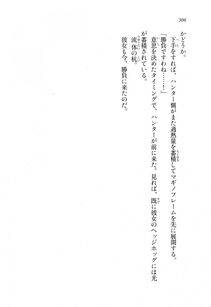 300
かどうか。
下手をすれば、ハンター側がまた過熱量を蓄積してマギノフレームを先に展開する。
「勝負ですね……！」
意思を決めたタイミングで、ハンターが前に来た。見れば、既に彼女のヘッジホッグには光
が蓄積されている。
流体の杭。
彼女も今、勝負に来たのだ。